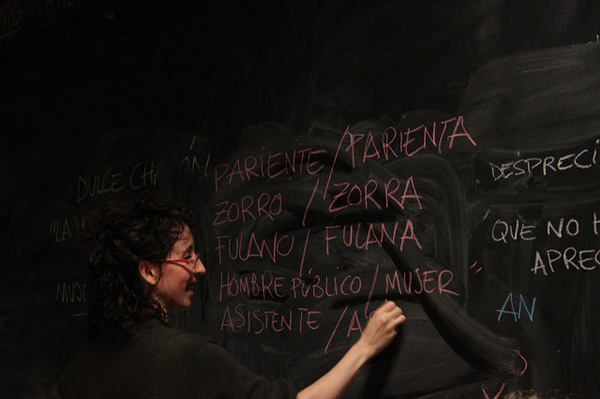 DULCE
PARIENTE / PARIENTA
ZORRO / ZORRA
FULANO / FULANA
HOMBRE PÚBLICO / MUJER "
ASISTENTE / AS
DESPRECI
"LA
QUE NO H
APREC
AN